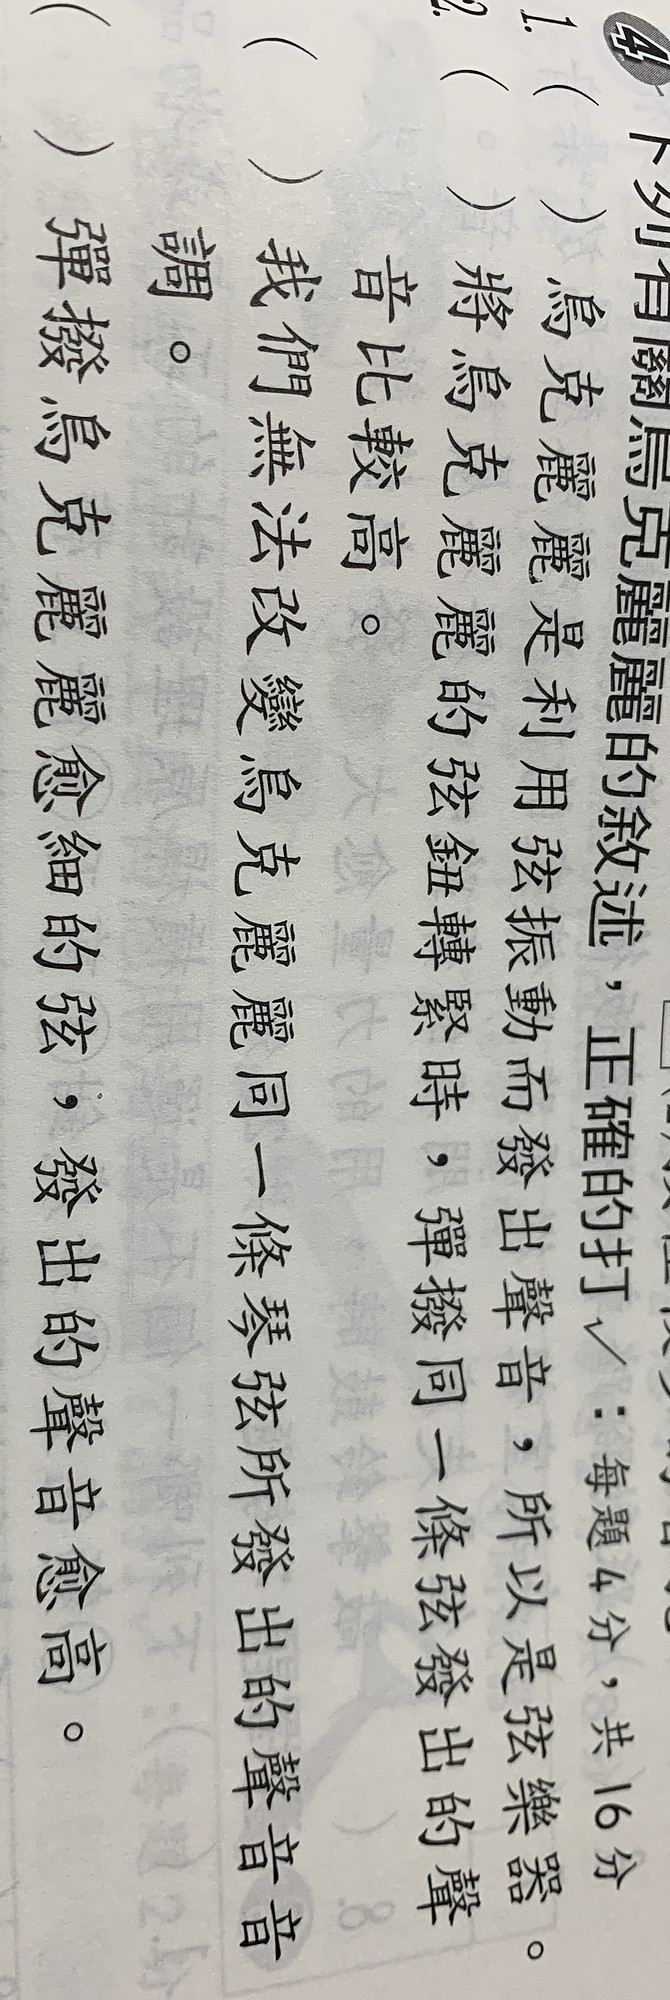 4 下列有關烏克麗麗的敘述，正確的打✓：每題4分，共16分
1.（ ）烏克麗麗是利用弦振動而發出聲音，所以是弦樂器。
2.（ ）將烏克麗麗的弦鈕轉緊時，彈撥同一條弦發出的聲
音比較高。
（ ）我們無法改變烏克麗麗同一條琴弦所發出的聲音音
調。
（ ）彈撥烏克麗麗愈細的弦，發出的聲音愈高。